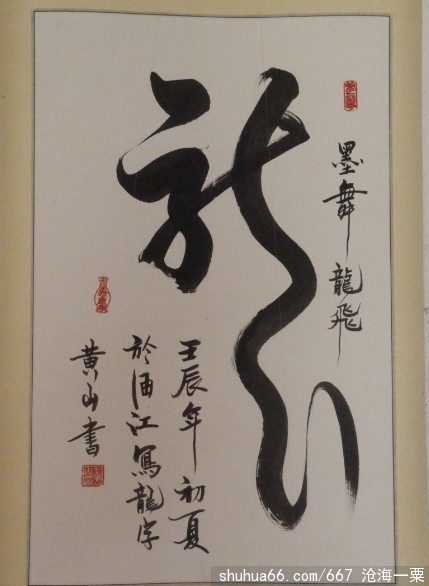 龍
墨舞龍飛
壬辰年初夏
於涌江寫龍字
黄山書
shuhua66.com/667 沧海一粟